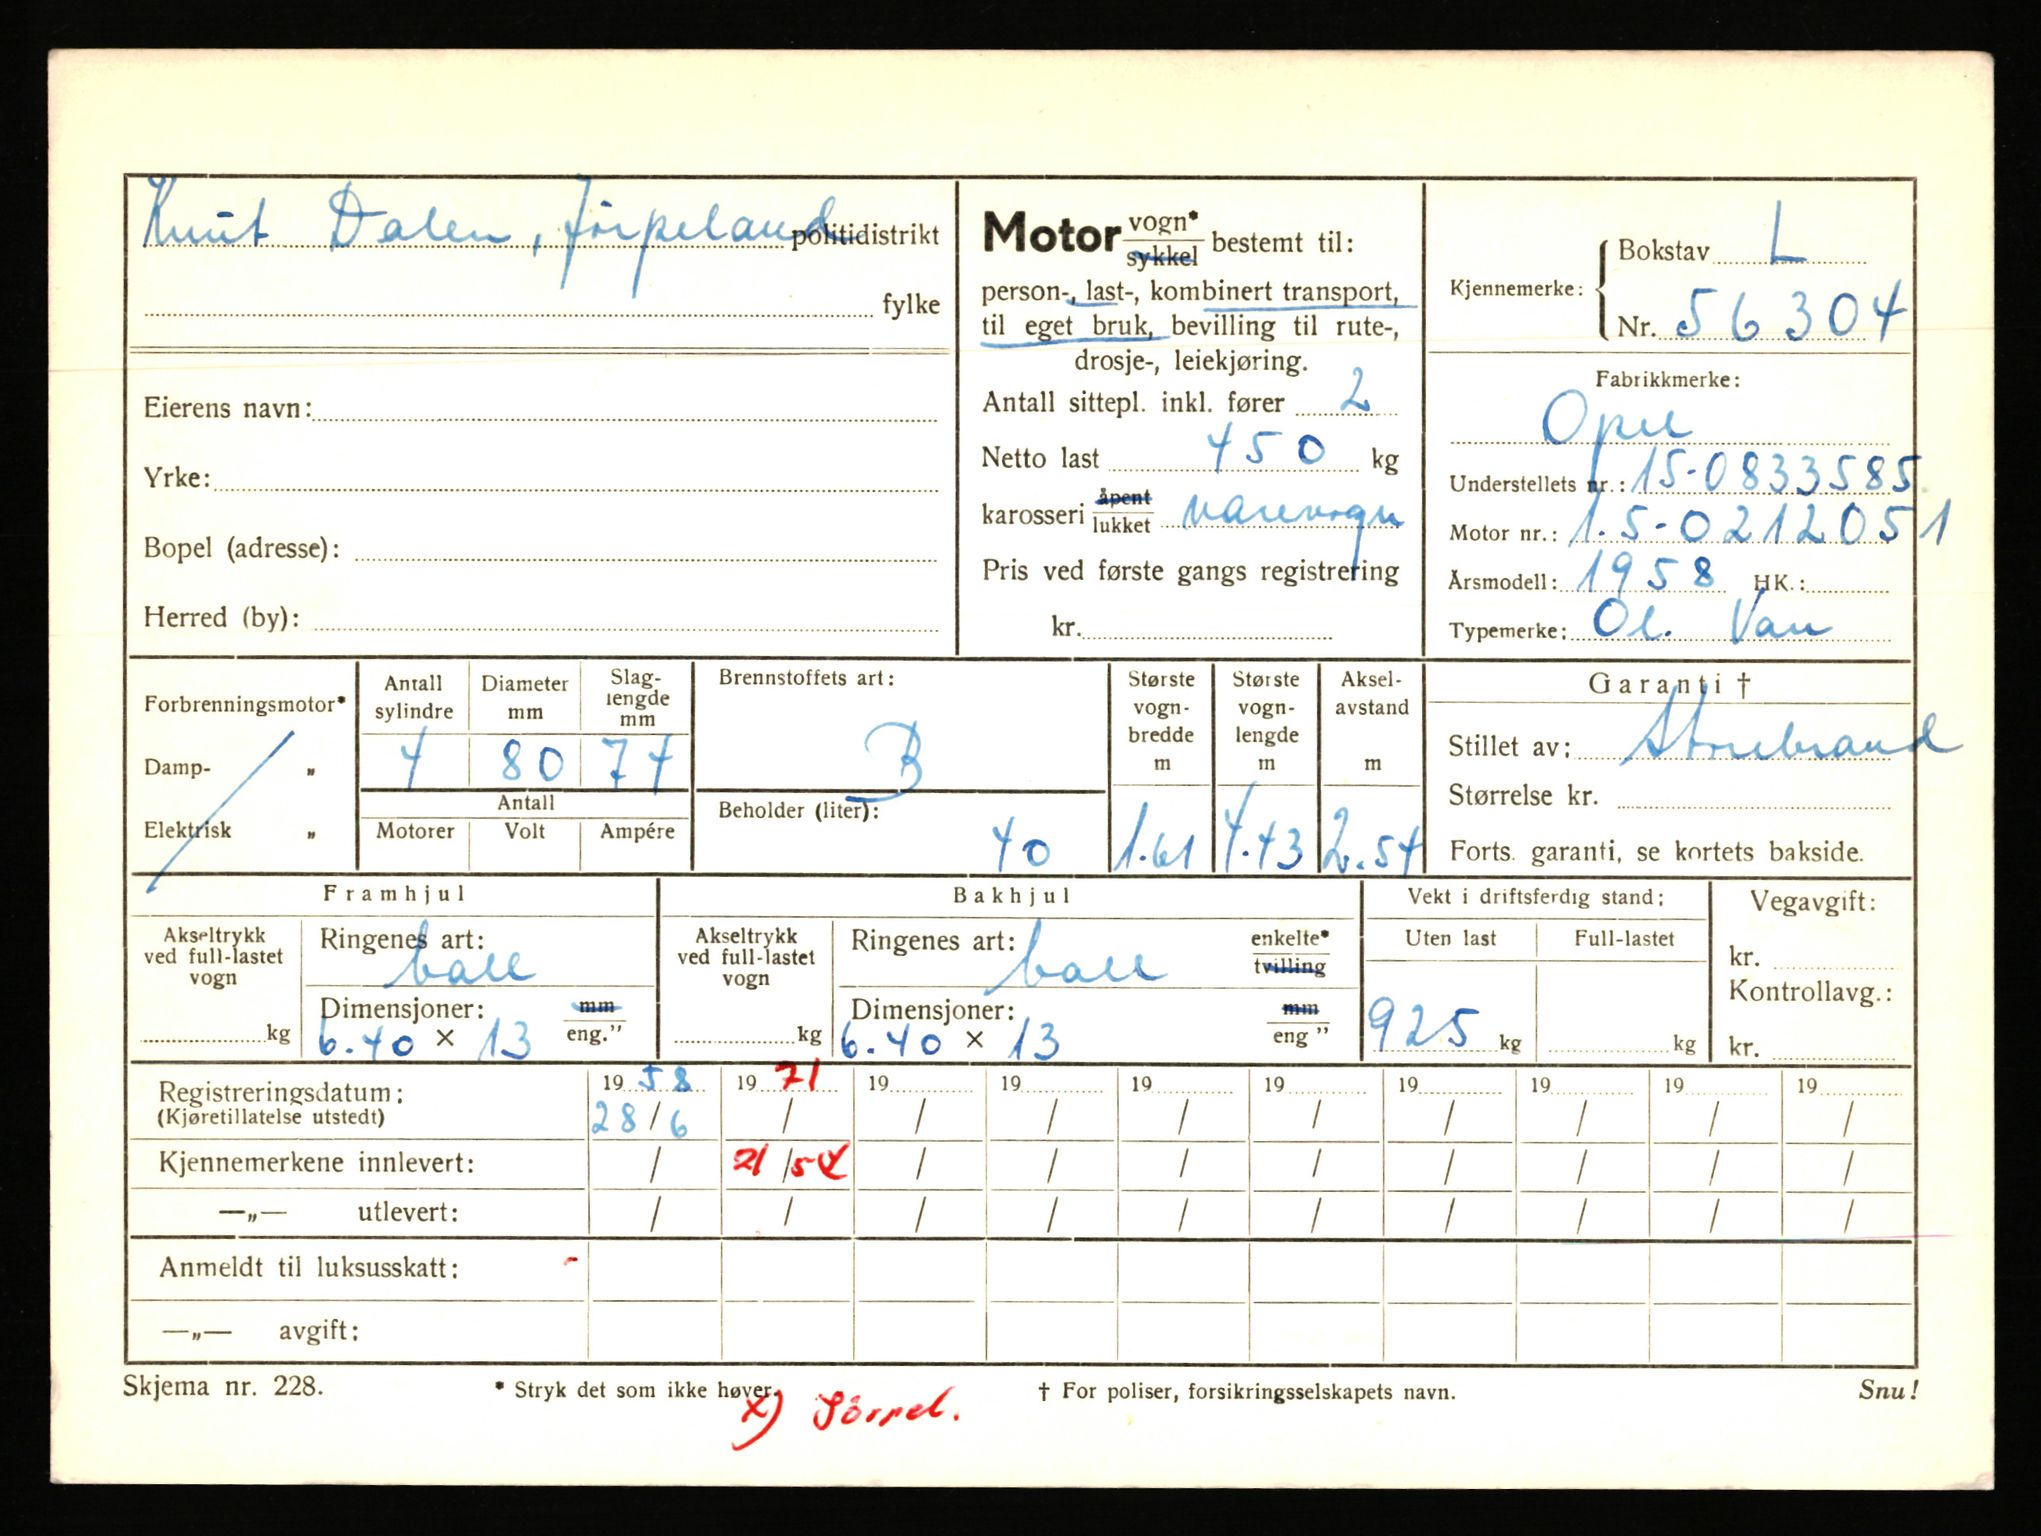 Knut Dalen, Jørpeland politidistrikt
fylke
Eierens navn:
Yrke:
Bopel (adresse):
Herred (by):
Motor vogn* sykkel bestemt til:
person-, last-, kombinert transport,
til eget bruk, bevilling til rute-,
drosje-, leiekjøring.
Antall sittepl. inkl. fører 2
Netto last 450 kg
karosseri åpent lukket varevogn
Pris ved første gangs registrering
kr.
Kjennemerke: Bokstav L
Nr. 56304
Fabrikkmerke:
Opel
Understellets nr.: 15-0833585
Motor nr.: 1.5-0212051
Årsmodell: 1958 HK.:
Typemerke: Ol. Van
Forbrenningsmotor*
Damp- „
Elektrisk „
Antall sylindre
Diameter mm
Slaglengde mm
4 80 74
Antall
Motorer Volt Ampére
Brennstoffets art:
B
Beholder (liter):
40
Største vogn-bredde m
1.61
Største vogn-lengde m
4.43
Aksel-avstand m
2.54
Garanti †
Stillet av: Storebrand
Størrelse kr.
Forts. garanti, se kortets bakside.
Framhjul
Akseltrykk ved full-lastet vogn
kg
Ringenes art:
ball
Dimensjoner: mm
6.40 × 13 eng.”
Bakhjul
Akseltrykk ved full-lastet vogn
kg
Ringenes art: enkelte*
ball tvilling
Dimensjoner: mm
6.40 × 13 eng ”
Vekt i driftsferdig stand:
Uten last Full-lastet
925 kg kg
Vegavgift:
kr.
Kontrollavg.:
kr.
Registreringsdatum: 1958 1971 19 19 19 19 19 19 19 19
(Kjøretillatelse utstedt) 28/6 / / / / / / / / /
Kjennemerkene innlevert: / 21/5 / / / / / / / /
—„— utlevert: / / / / / / / / / /
Anmeldt til luksusskatt: -
—„— avgift:
Skjema nr. 228. * Stryk det som ikke høver. † For poliser, forsikringsselskapets navn. Snu!
x) Jörpel.